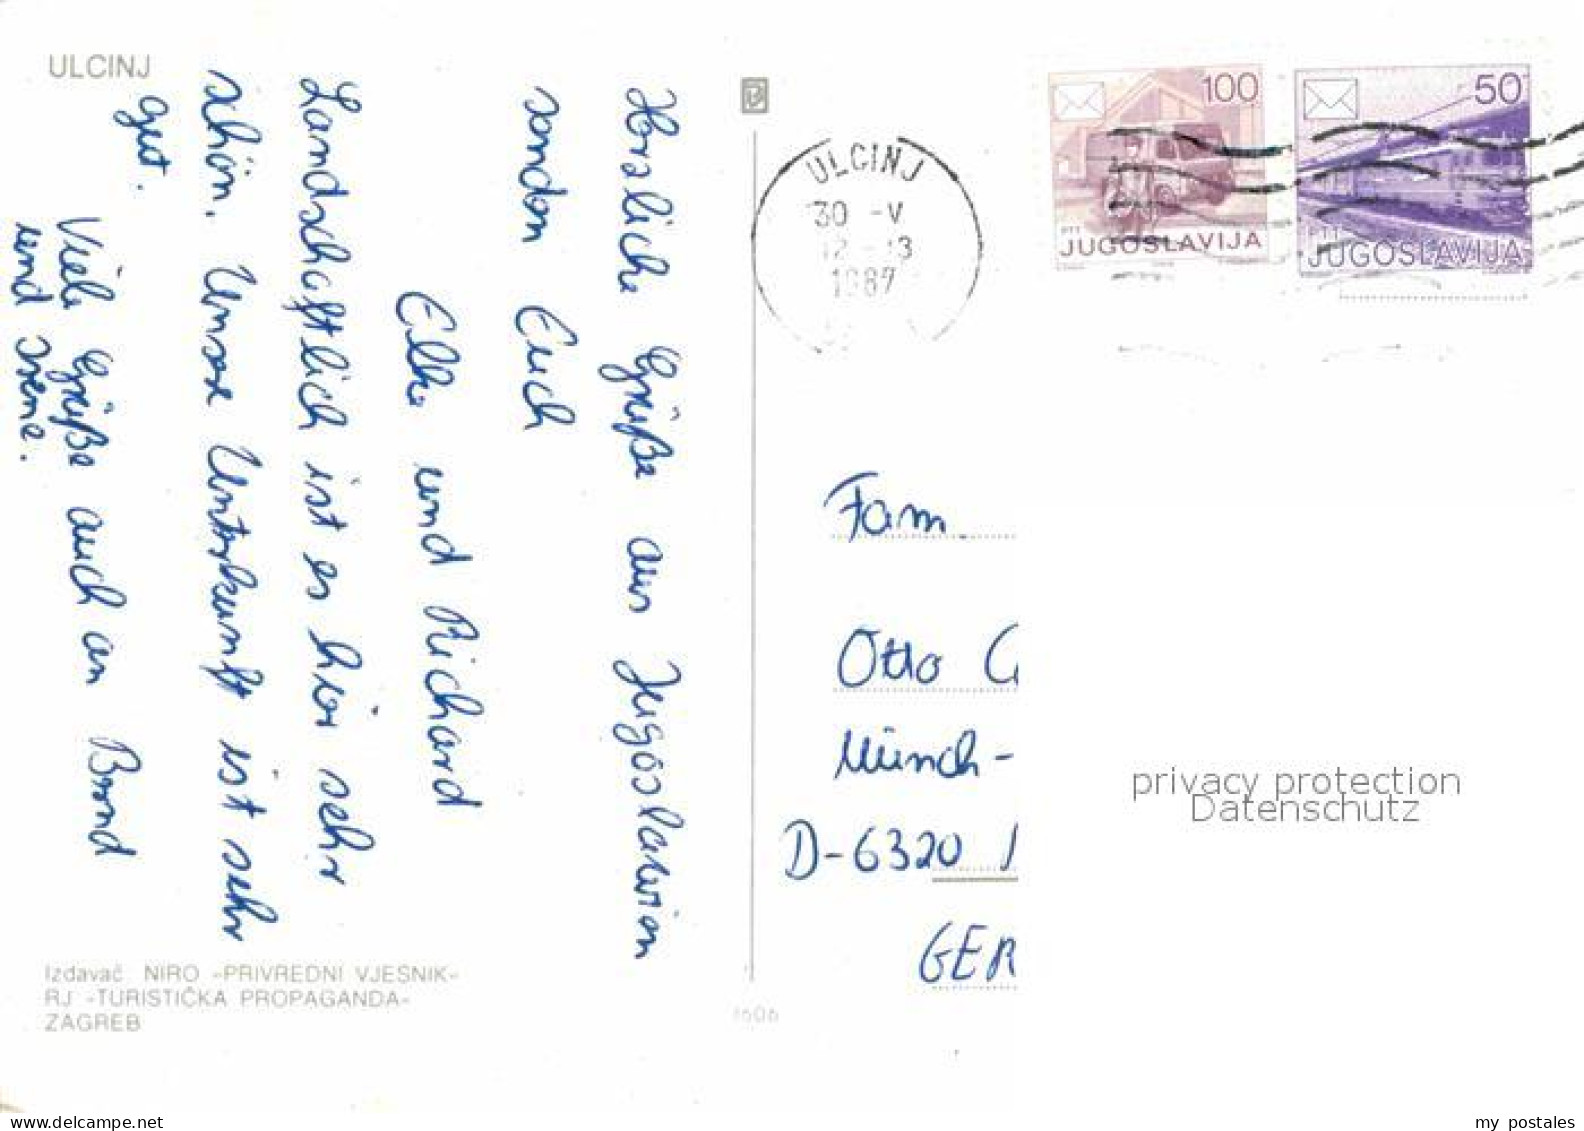 ULCINJ
Herzliche Grüße aus Jugoslawien
senden Euch
Elke und Richard
Landschaftlich ist es hier sehr
schön. Unsere Unterkunft ist sehr
gut.
Viele Grüße auch an Bernd
und Irene.
Izdavač: NIRO »PRIVREDNI VJESNIK«
RJ »TURISTIČKA PROPAGANDA«
ZAGREB
1606
ULCINJ
30 -V
12-13
1987
100
PTT
JUGOSLAVIJA
50
PTT
JUGOSLAVIJA
Fam.
Otto
Münch-
D-6320
GER
privacy protection
Datenschutz
www.delcampe.net
my_postales